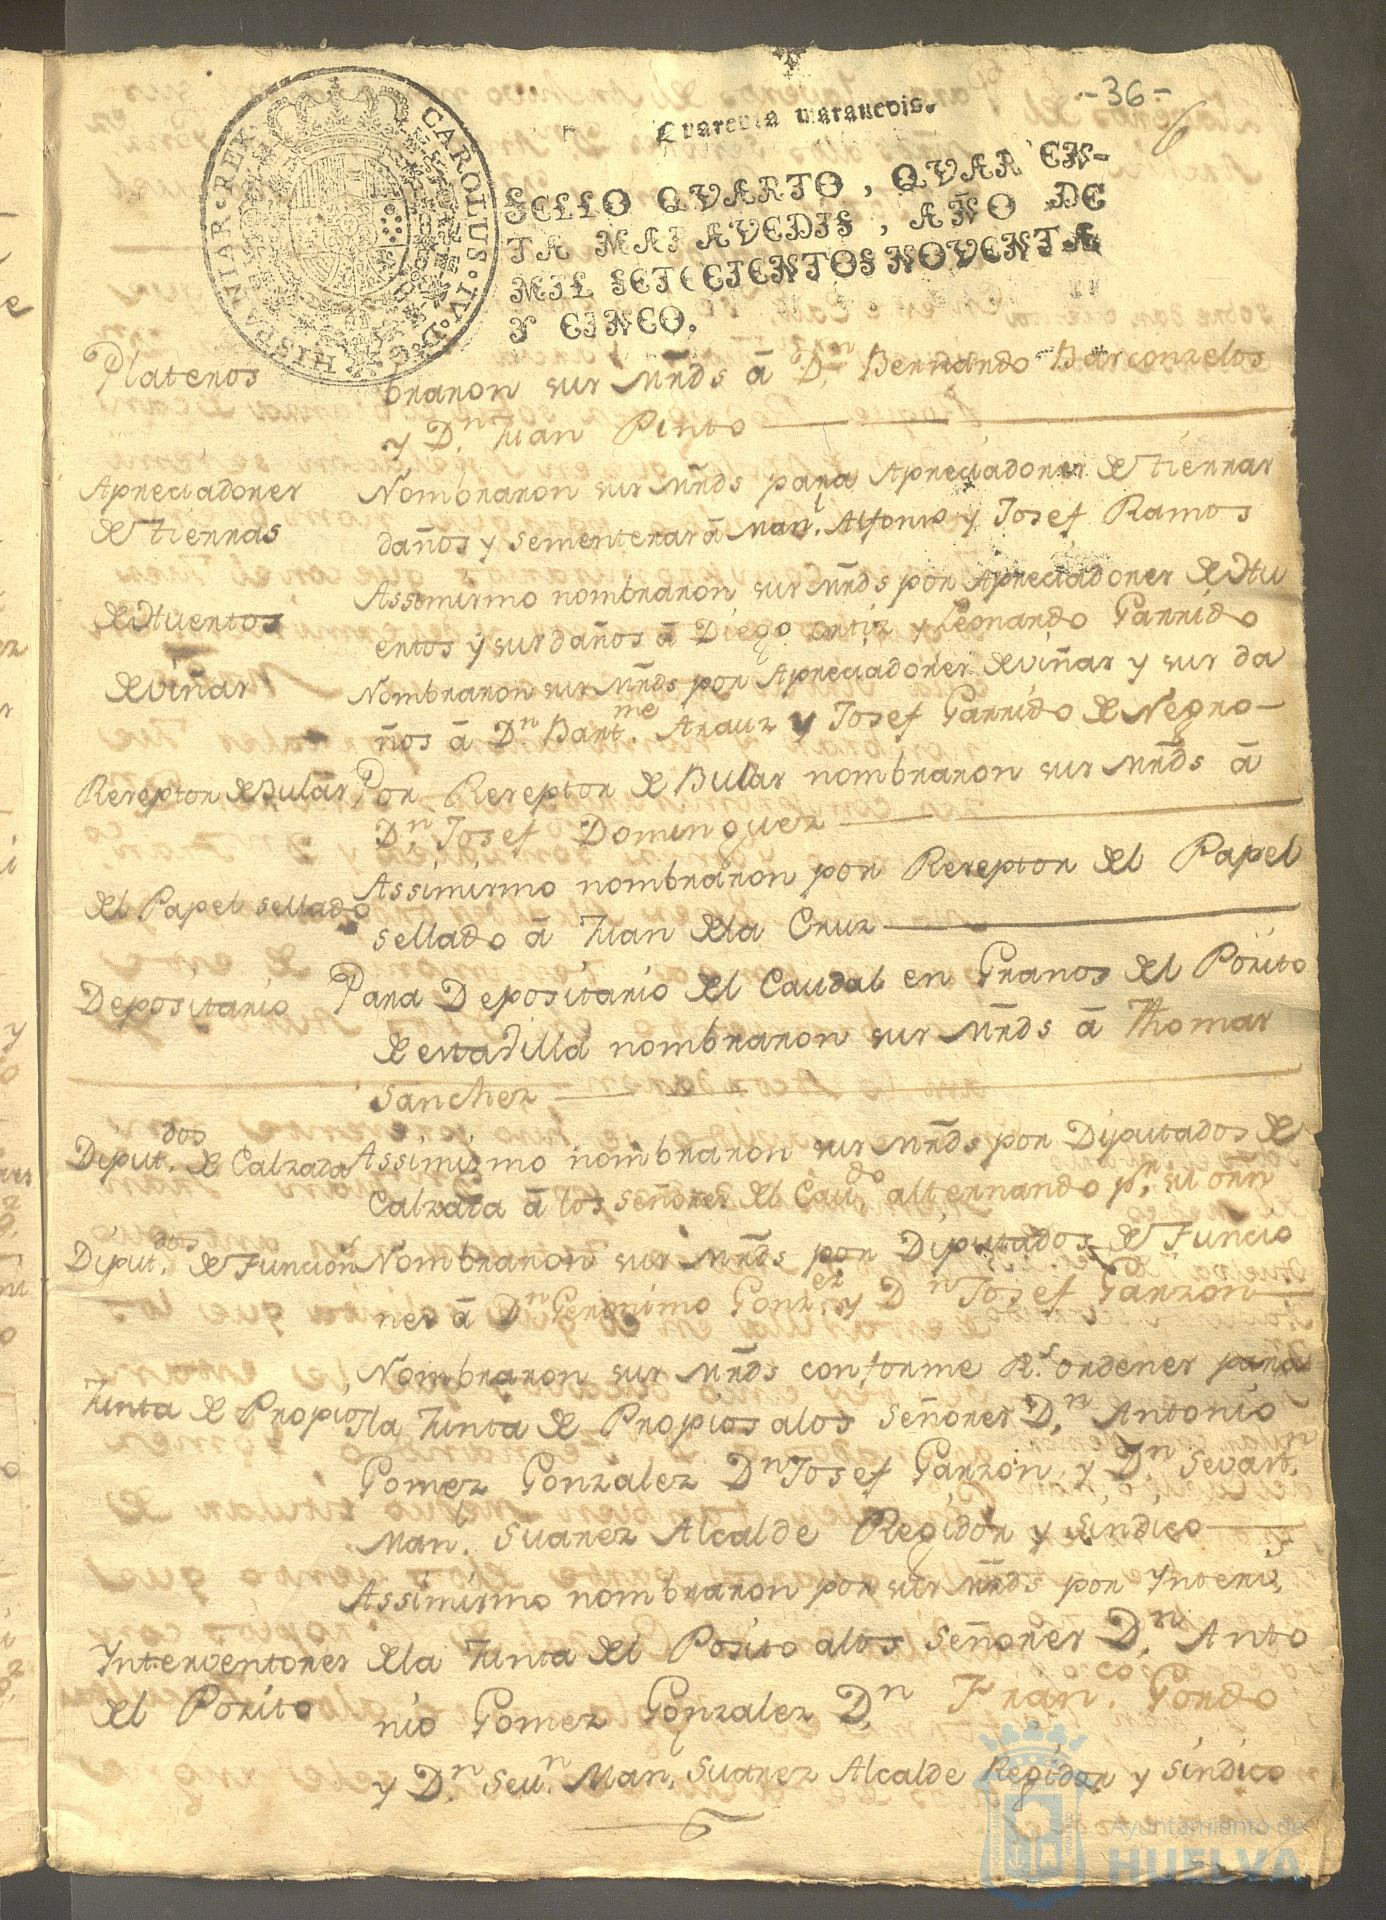 -36-
6
Quarenta maravedis.
SELLO QVARTO, QVAREN-
TA MARAVEDIS, AÑO DE
MIL SETECIENTOS NOVENTA
Y CINCO.
CAROLUS·IV·D·G·HISPANIAR·REX·
Plateros
braron sus Mrds â Dn. Bernardo Barconzelos
y Dn. Juan Pinto
Apreciadores
de tierras
Nombraron sus Mrds para Apreciadores de tierras
daños y sementeras â Manl. Alfonso y Josef Ramos
de Huertos
Assimismo nombraron sus Mrds por Apreciadores de Hu
ertos y sus daños â Diego Ortiz y Leonardo Garrido
de viñas
Nombraron sus Mrds por Apreciadores de viñas y sus da
ños â Dn Bartme. Arauz y Josef Garrido de Negro-
Rezeptor de Bulas
Por Rezeptor de Bulas nombraron sus Mrds â
Dn. Josef Dominguez
del Papel sellado
Assimismo nombraron por Rezeptor del Papel
sellado â Juan de la Cruz
Depositario
Para Depositario del Caudal en Granos del Pozito
de esta Villa nombraron sus Mrds â Thomas
Sanchez
Diputdos. de Calzada
Assimismo nombraron sus Mrds por Diputados de
Calzada â los señores del Caudo. alternando pr. su orñ
Diputdos. de Funcion
Nombraron sus Mrds por Diputados de Funcio
nes â Dn Geronimo Gonzez. y Dn Josef Garzon
Junta de Propios
Nombraron sus Mrds conforme Rs. ordenes para
la Junta de Propios a los Señores Dn. Antonio
Gomez Gonzalez Dn Josef Garzon, y Dn. Sevastn.
Man. Suarez Alcalde Regidor y Sindico
Interventores
del Pozito
Assimismo nombraron por sus Mrds por Interv.s
de la Junta del Posito a los Señores Dn. Anto
nio Gomez Gonzalez Dn. Franco. Gordo
y Dn. Seun. Man. Suarez Alcalde Regidor y Sindico
Ayuntamiento de
HUELVA